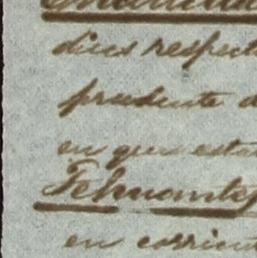 dicus respect
prudente d
en que esta
Tehuante
en corrient